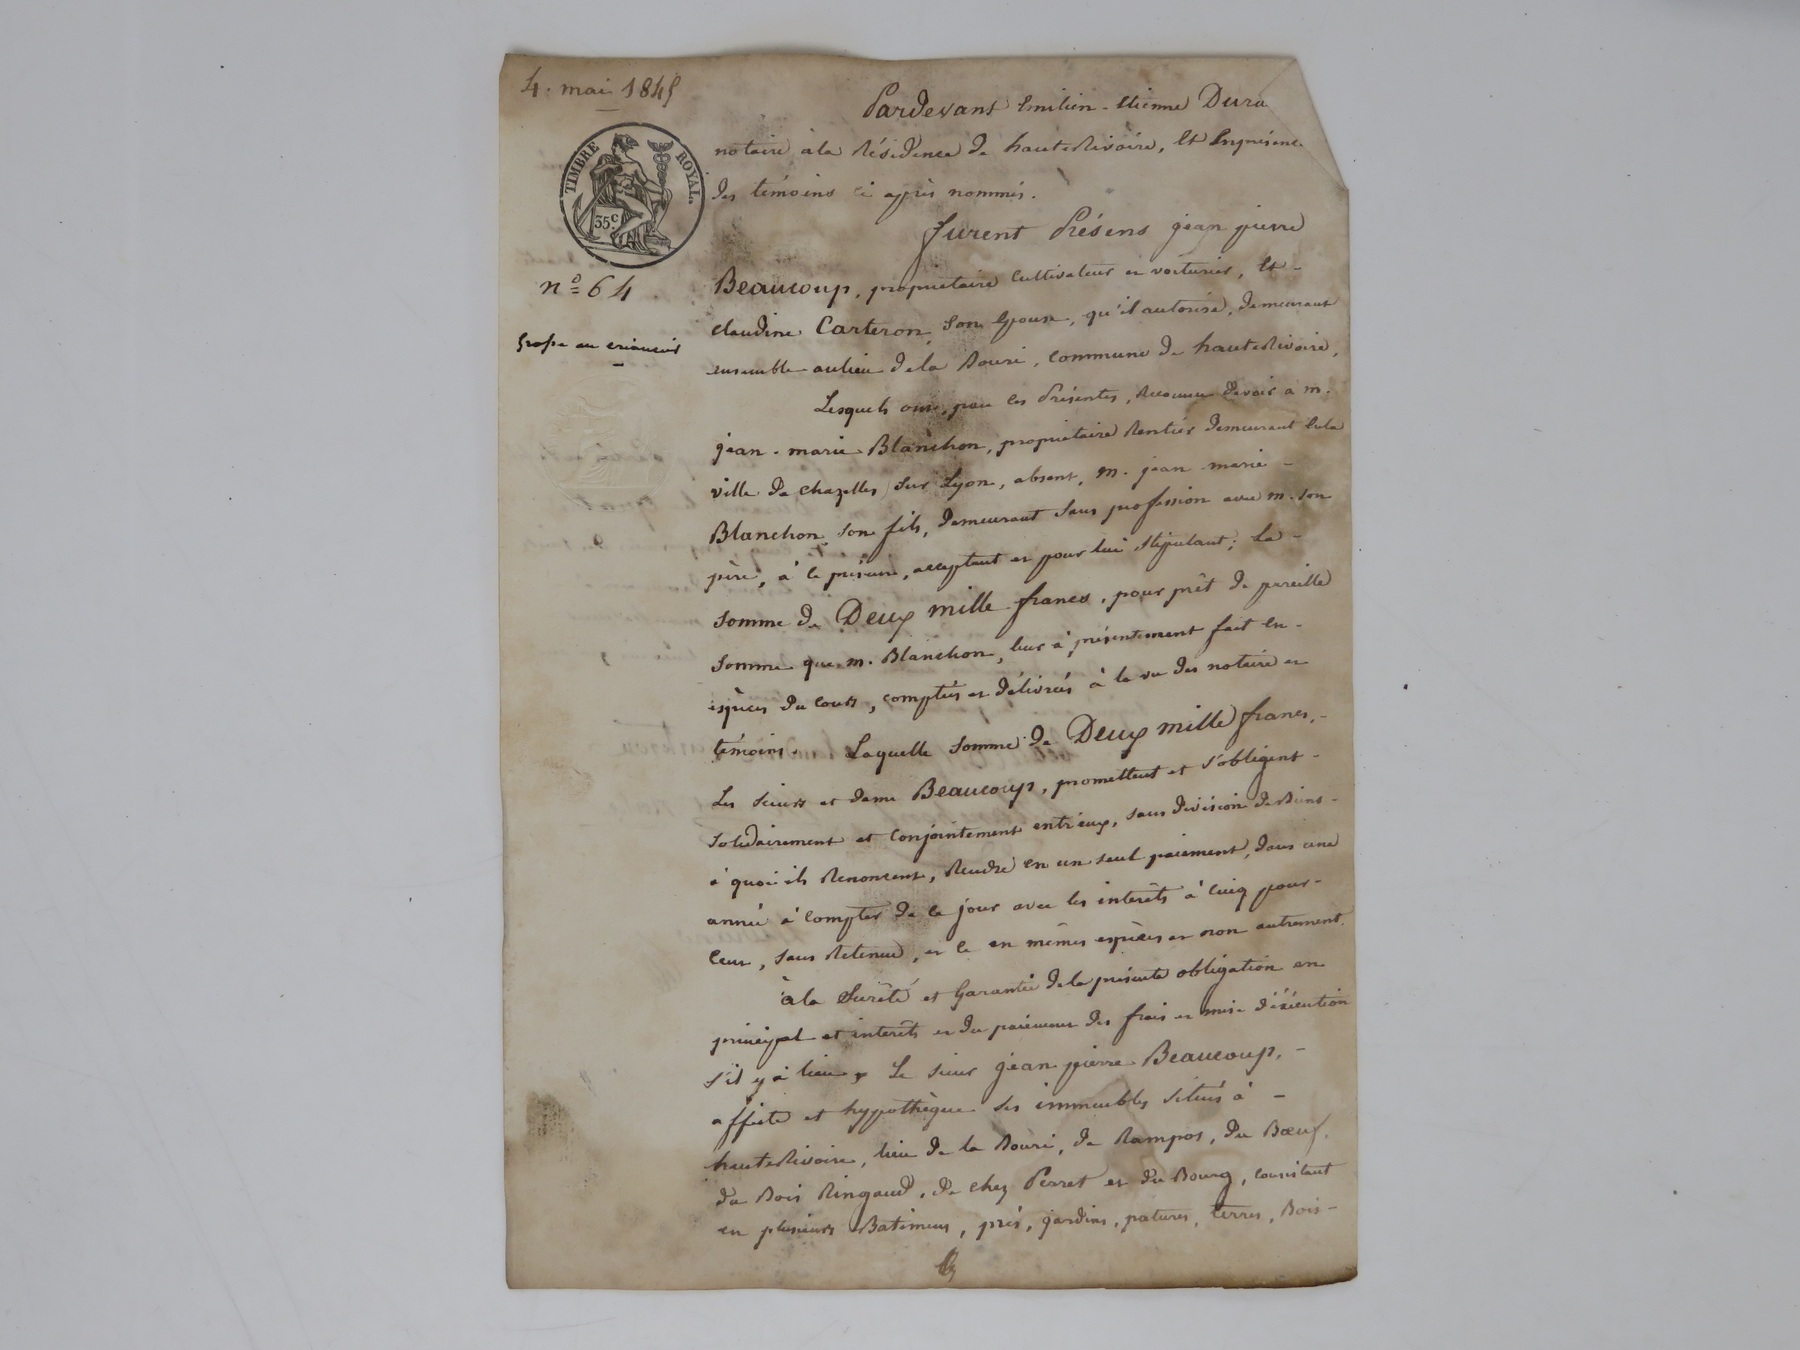 4. mai 1845
TIMBRE ROYAL.
35c.
no 64
Grosse au créancier
Pardevant Emilien - Etienne Dura
notaire à la Résidence de hauteRivoire, Et Enprésence
des témoins ci après nommés.
furent Présens jean pierre
Beaucoup, propriétaire Cultivateur et voiturier, Et -
claudine Carteron, Son Epouse, qu'il autorise, demeurant
ensemble aulieu dela Bouri, Commune de hauteRivoire,
Lesquels ont, par ces Présentes, Reconnu devoir a m.
jean - marie Blanchon, propriétaire Rentier demeurant Enla
ville de chazelles sur Lyon, absent, m. jean marie -
Blanchon, son fils, demeurant sans profession avec m. son
père, à ce présent, acceptant et pour lui stipulant; La -
Somme de Deux mille francs, pour prêt de pareille
Somme que m. Blanchon, leur à présentement fait En -
espèces du cours, comptées et délivrées à la vue des notaire et
témoins. Laquelle Somme de Deux mille francs, -
Les Sieurs et dame Beaucoup, promettent et s'obligent -
Solidairement et Conjointement entr'eux, sans division deBiens -
à quoi ils Renoncent, Rendre en un seul paiement, dans une
année à Compter de ce jour avec les interêts à Cinq pour -
Cent, sans Retenue, et ce en mêmes espèces et non autrement.
àla Sureté et Garantie dela présente obligation en
principal et interêts et du paiement des frais et mise d'éxécution
s'il y à lieu, Le sieur jean pierre Beaucoup, -
affecte et hyppothèque ses immeubles situés à -
hauteRivoire, lieu de la Bouri, de Rampos, du Bœuf,
du Bois Ringaud, de chez Perret et du Bourg, consistant
en plusieurs Batimens, prés, jardins, patures, terres, Bois -